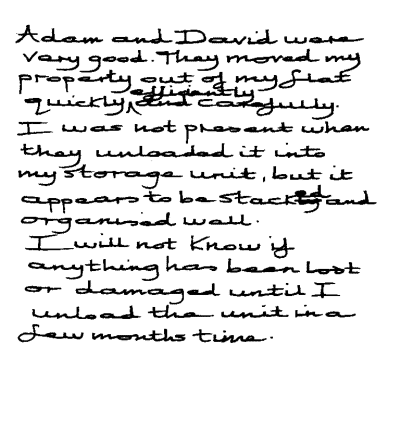 Adam and David were
very good. They moved my
property out of my flat
quickly, efficiently and carefully.
I was not present when
they unloaded it into
my storage unit, but it
appears to be stacked and
organised well.
I will not know if
anything has been lost
or damaged until I
unload the unit in a
few months time.